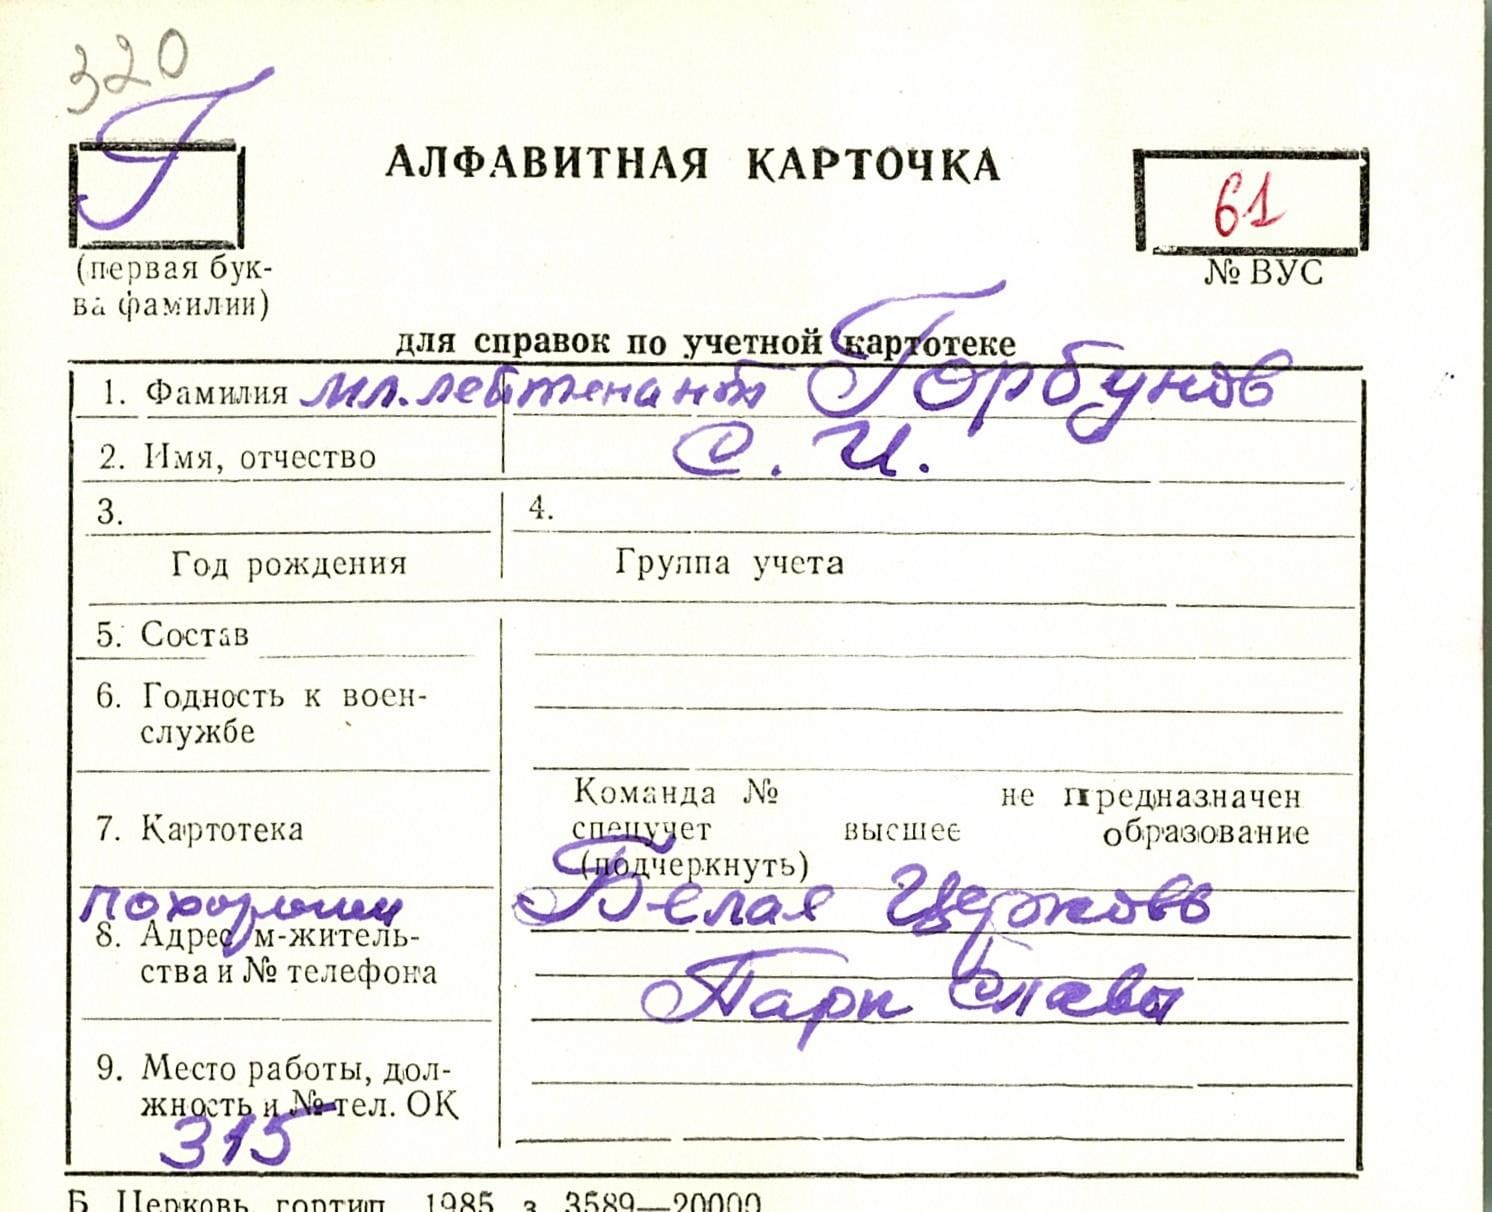 320
Г
АЛФАВИТНАЯ КАРТОЧКА
61
(первая бук-
ва фамилии)
№ ВУС
для справок по учетной картотеке
1. Фамилия мл. лейтенант Горбунов
2. Имя, отчество С. И.
3.
4.
Год рождения
Группа учета
5. Состав
6. Годность к воен-
службе
7. Картотека
Команда № не предназначен
спецучет высшее образование
(подчеркнуть)
похоронен Белая Церковь
8. Адрес м-житель-
ства и № телефона
Парк Славы
9. Место работы, дол-
жность и № тел. ОК
315
Б. Церковь, гортип. 1985 з. 3589—20000